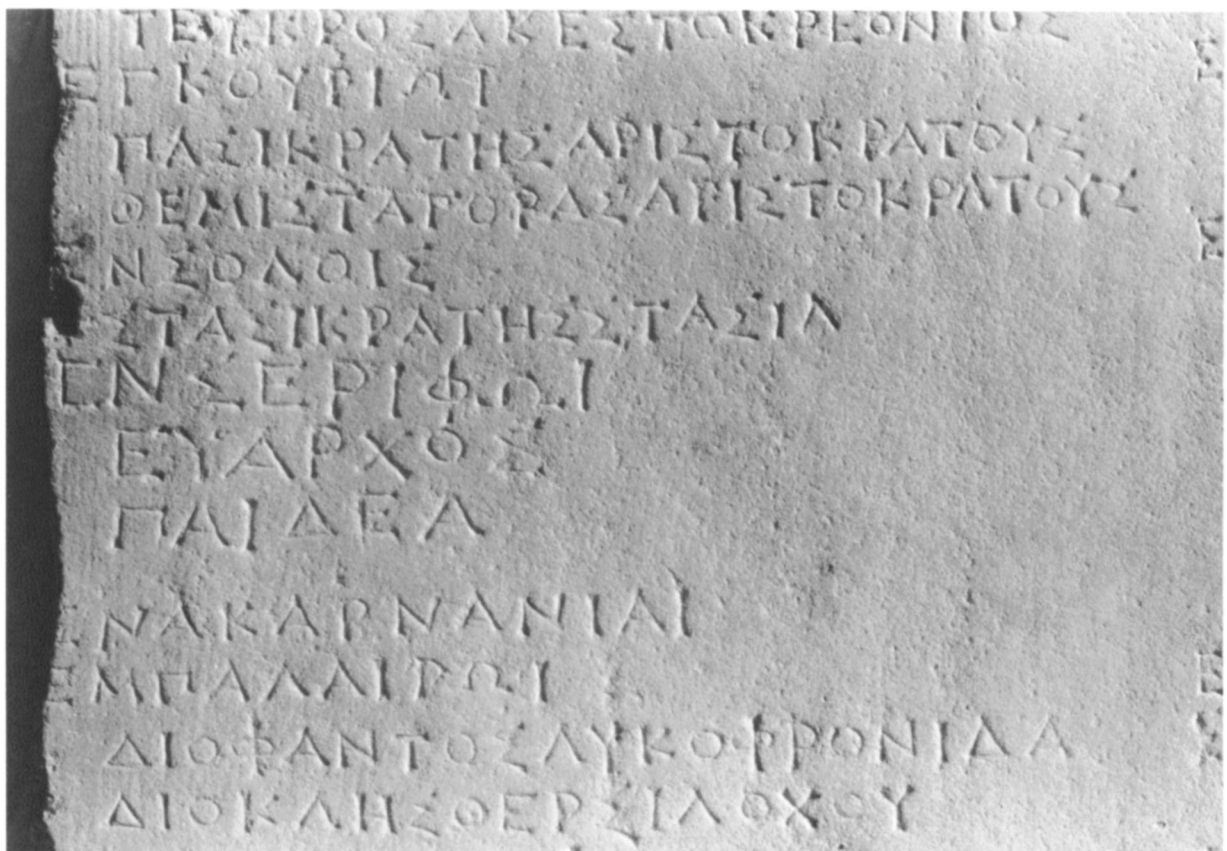 ΤΕΥΚΡΟΣΑΚΕΣΤΟΚΡΕΟΝΤΙΟΣ
ΕΓΚΟΥΡΙΩΙ
ΠΑΣΙΚΡΑΤΗΣΑΡΙΣΤΟΚΡΑΤΟΥΣ
ΘΕΜΙΣΤΑΓΟΡΑΣΑΡΙΣΤΟΚΡΑΤΟΥΣ
ΝΣΟΛΟΙΣ
ΣΤΑΣΙΚΡΑΤΗΣΣΤΑΣΙΑ
ΕΝΣΕΡΙΦΩΙ
ΕΥΑΡΧΟΣ
ΠΑΙΔΕΑ
ΕΝΑΚΑΡΝΑΝΙΑΙ
ΕΜΠΑΛΑΙΡΩΙ
ΔΙΟΦΑΝΤΟΣΛΥΚΟΦΡΟΝΙΔΑ
ΔΙΟΚΛΗΣΘΕΡΣΙΛΟΧΟΥ